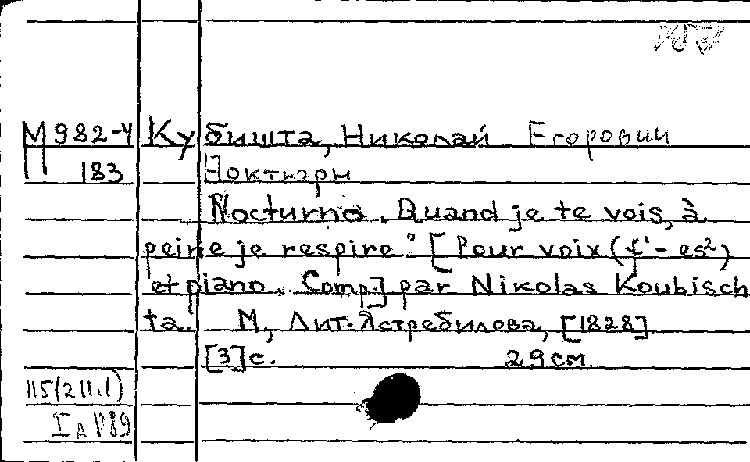 М 982-4 Кубишта, Николай Егорович
183 Ноктюрн
Nocturno. Quand je te vois, à
peine je respire". [Pour voix (f¹- es²)
et piano. Comp.] par Nikolas Koubisch
ta. М, Лит. Ястребилова, [1828]
[3]с. 29 см
115(211.1)